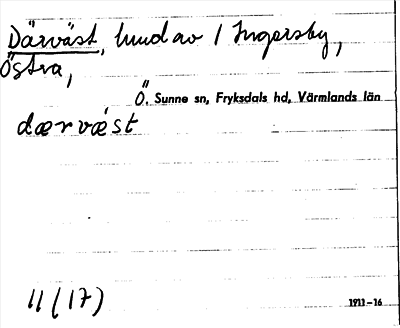 Därväst, hmd av 1 Ingersby,
Östra,
Ö. Sunne sn, Fryksdals hd, Värmlands län
dærvǽst
11 (17)
1911-16